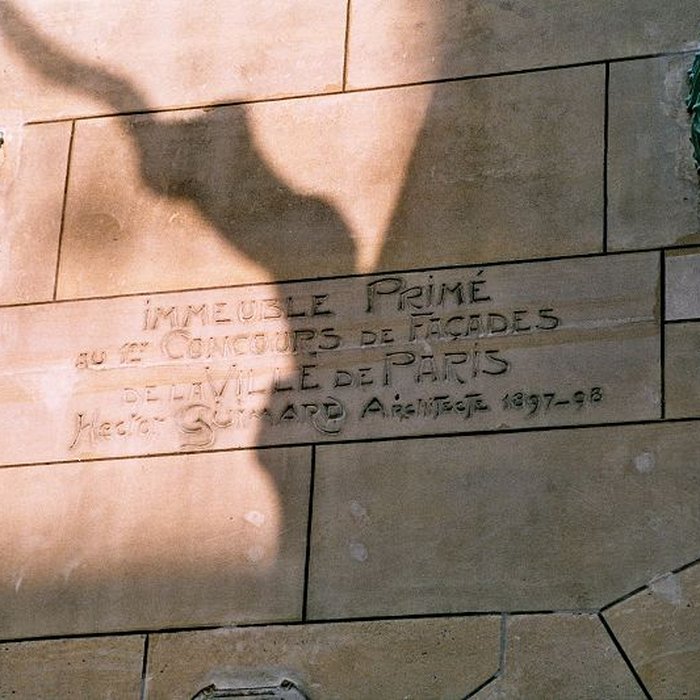 IMMEUBLE PRIMÉ
AU 1ER CONCOURS DE FAÇADES
DE LA VILLE DE PARIS
Hector GUIMARD Architecte 1897-98